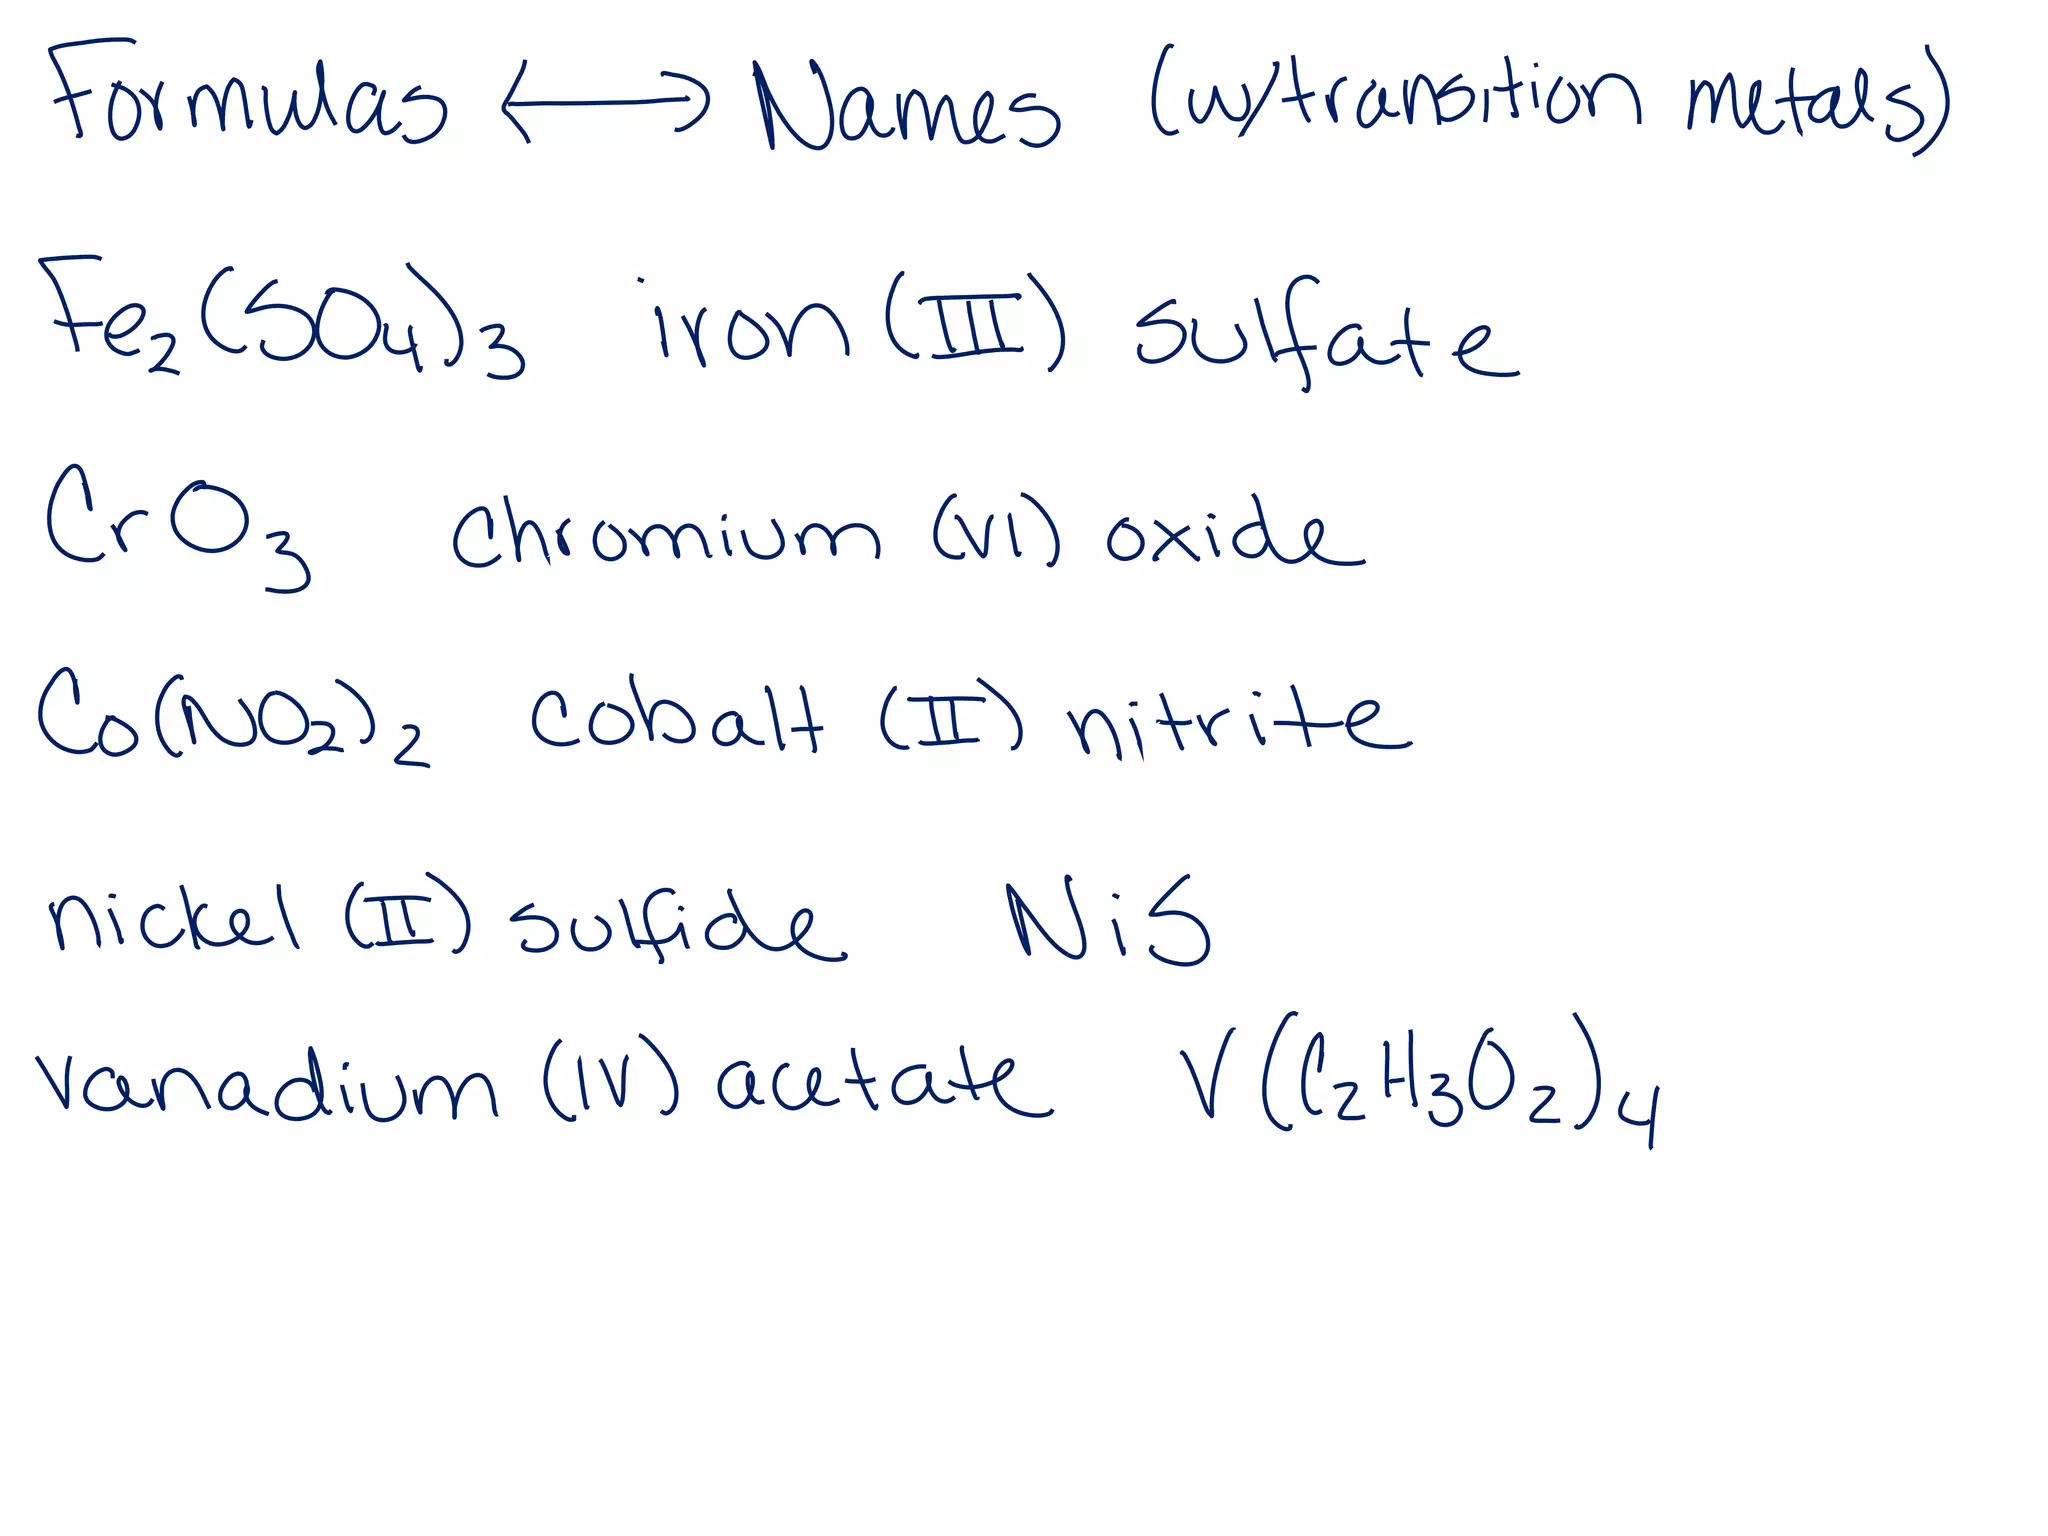 Formulas ⟷ Names (w/transition metals)
Fe₂(SO₄)₃ iron (III) sulfate
CrO₃ chromium (VI) oxide
Co(NO₂)₂ cobalt (II) nitrite
nickel (II) sulfide NiS
vanadium (IV) acetate V(C₂H₃O₂)₄